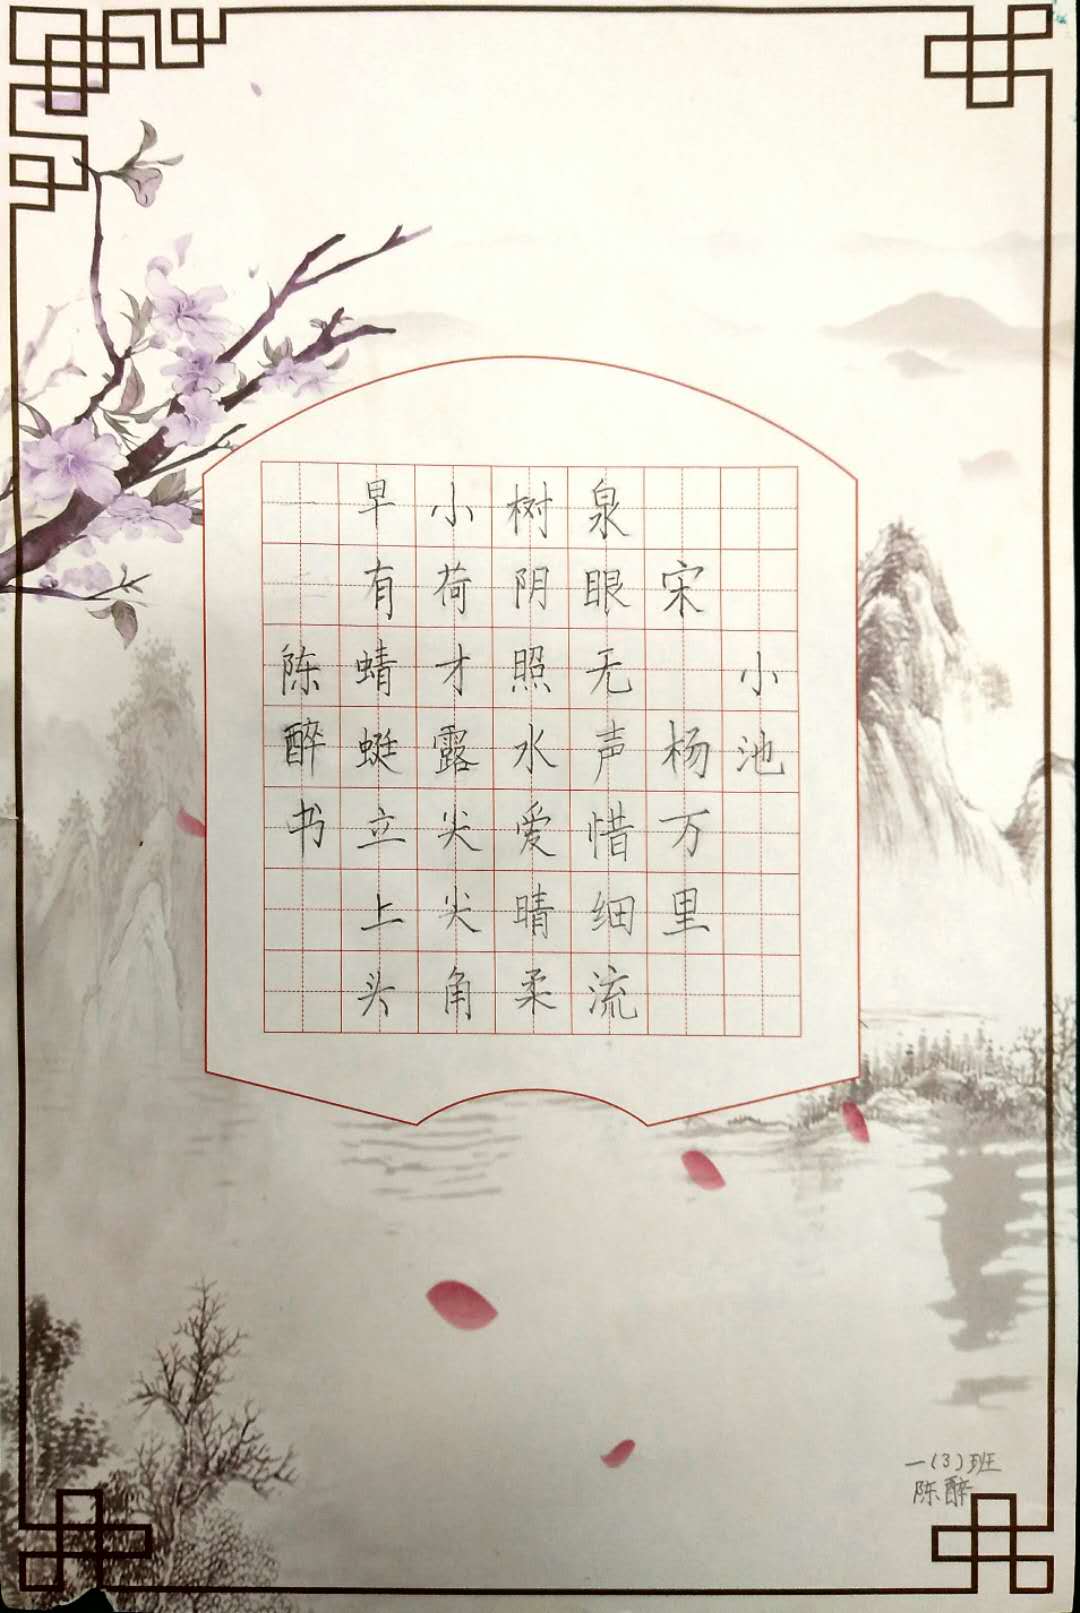 小池
宋 杨万里
泉眼无声惜细流
树阴照水爱晴柔
小荷才露尖尖角
早有蜻蜓立上头
陈醉书
一(3)班
陈醉